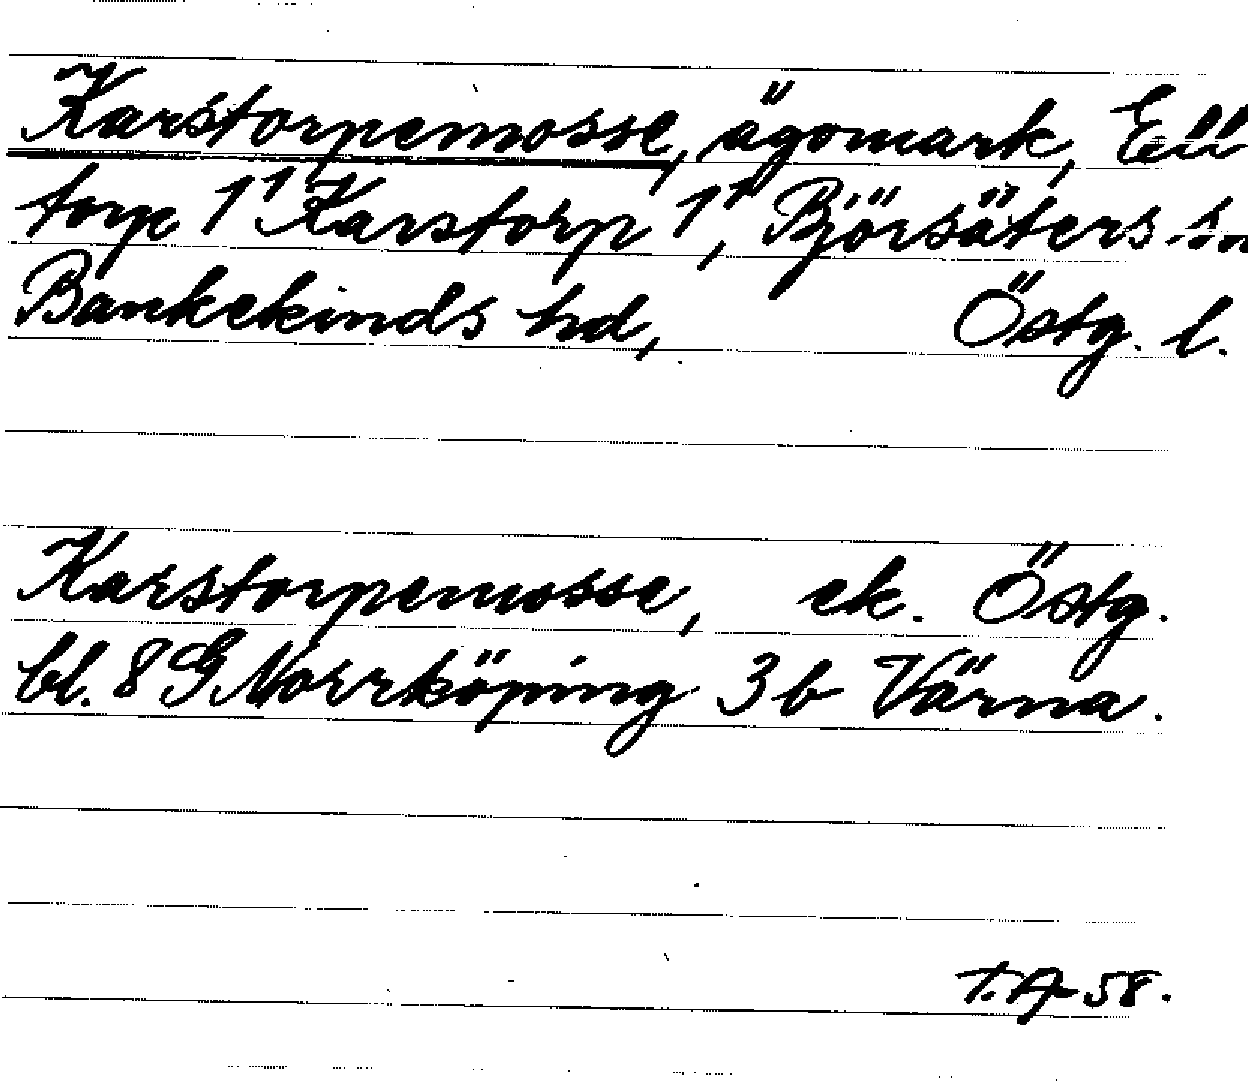 Karstorpemosse, ägomark, Ell
torp 1¹ Karstorp 1¹, Björsäters sn
Bankekinds hd, Östg. l.
Karstorpemosse, ek. Östg.
bl. 8 G Norrköping 3b Värna.
T.A-58.